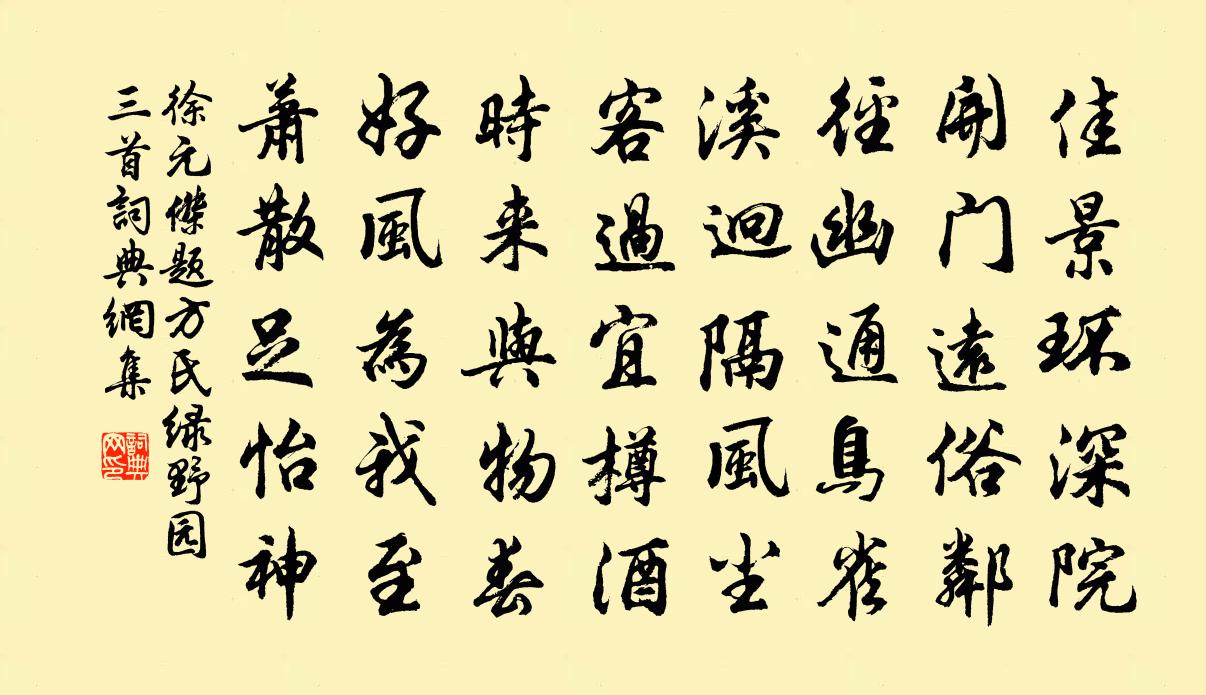 佳景環深院
開門遠俗鄰
徑幽通鳥雀
溪迴隔風尘
客過宜樽酒
時来與物春
好風為我至
蕭散足怡神
徐元傑題方氏绿野园
三首詞典網集
詞典网印